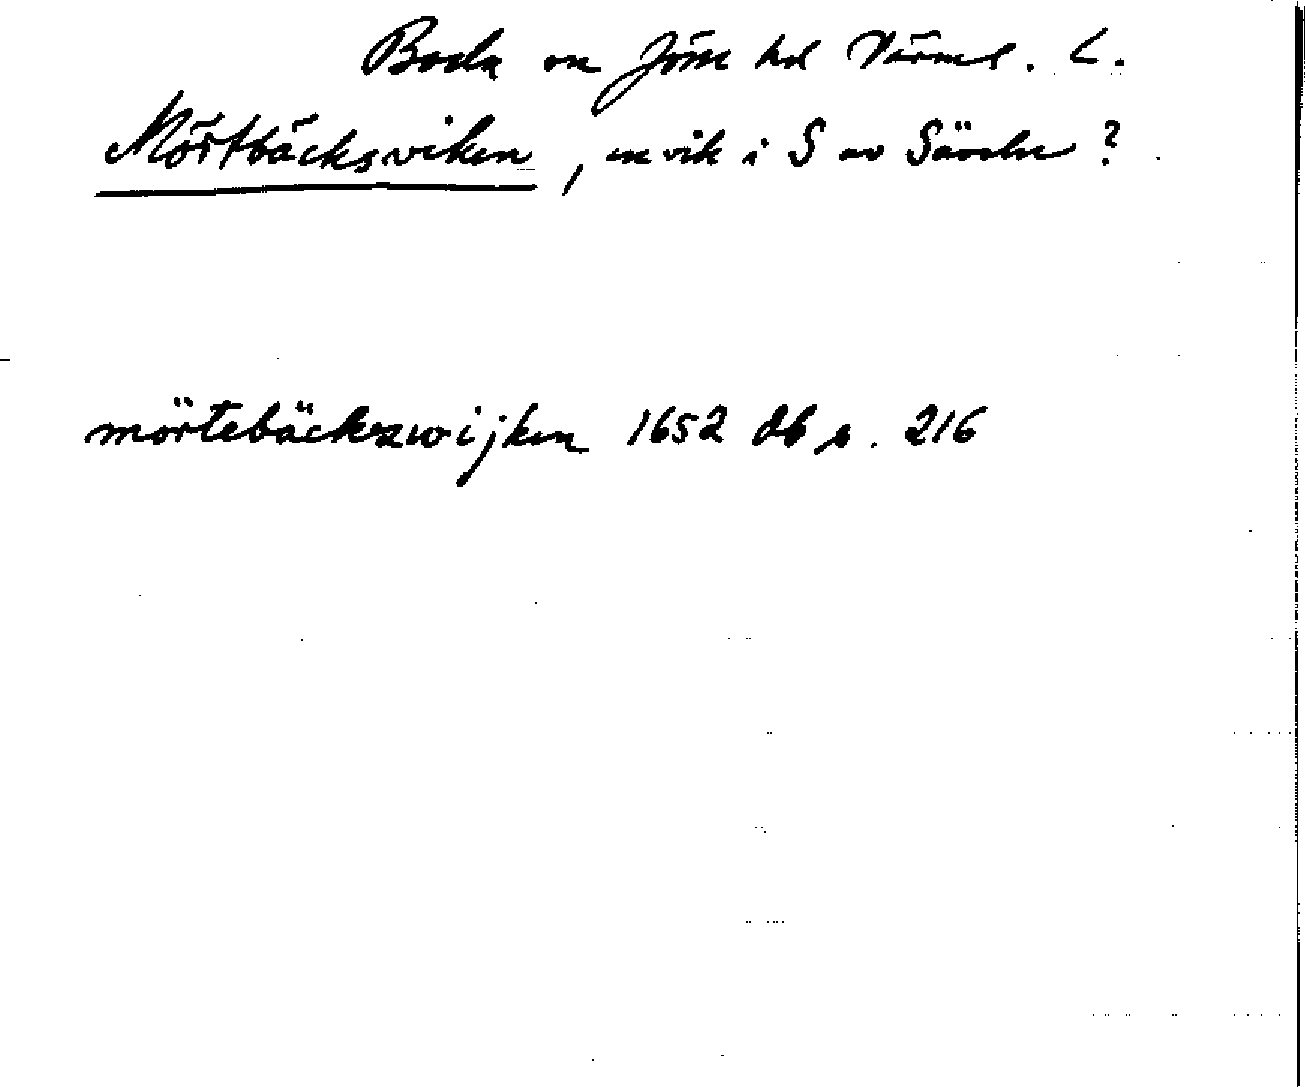 Boda sn Jösse hd Värml. L.
Mörtbäcksviken, en vik i S av
mörtebäckzwijken 1652 db s. 216